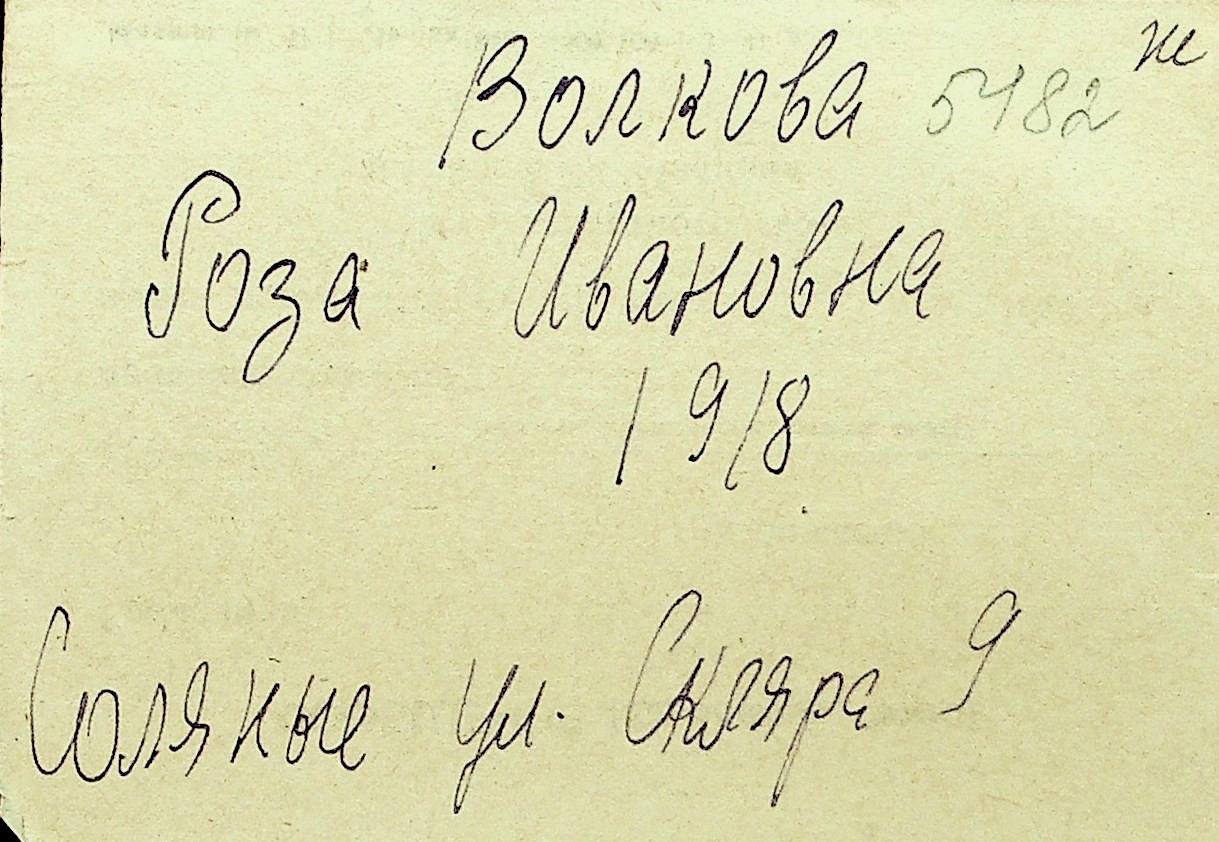 Волкова 5482 ж
Роза Ивановна
1918
Соляные ул. Скляра 9